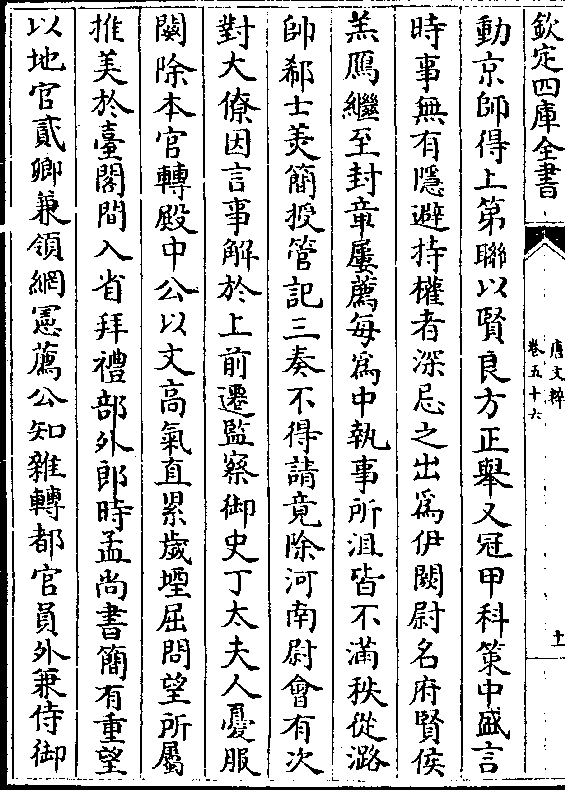 欽定四庫全書
唐文粹
卷五十六
十一
動京師得上第聯以賢良方正舉又冠甲科策中盛言
時事無有隱避持權者深忌之出為伊闕尉名府賢侯
羔鴈繼至封章屢薦每為中執事所沮皆不滿秩從潞
帥郗士美簡授管記三奏不得請竟除河南尉會有次
對大僚因言事解於上前遷監察御史丁太夫人憂服
闋除本官轉殿中公以文高氣直累歲堙屈問望所屬
推美於臺閣間入省拜禮部外郎時孟尚書簡有重望
以地官貳卿兼領網憲薦公知雜轉都官員外兼侍御